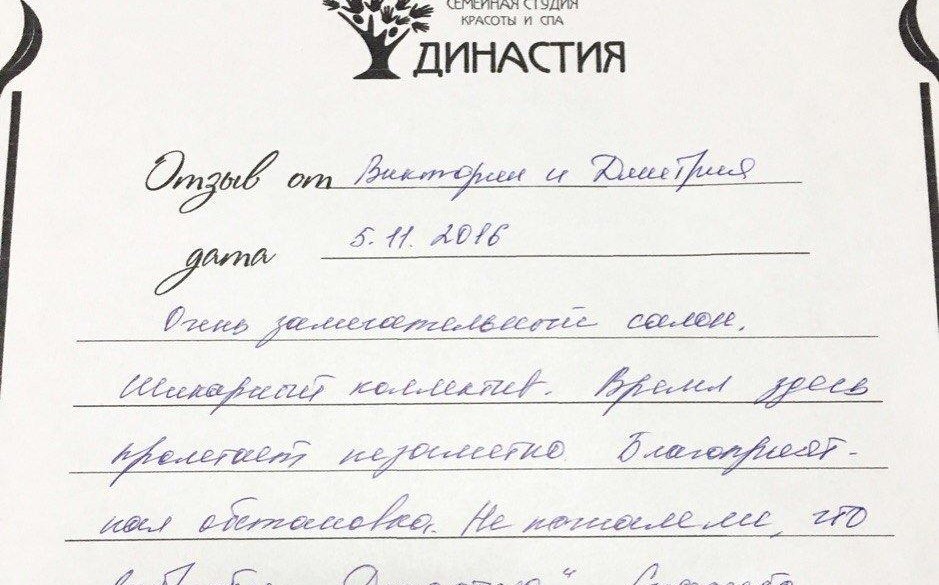 СЕМЕЙНАЯ СТУДИЯ
КРАСОТЫ И СПА
ДИНАСТИЯ
Отзыв от Виктории и Дмитрия
дата 5.11.2016
Очень замечательный салон.
Шикарный коллектив. Время здесь
пролетает незаметно. Благоприят-
ная обстановка. Не пожалели, что